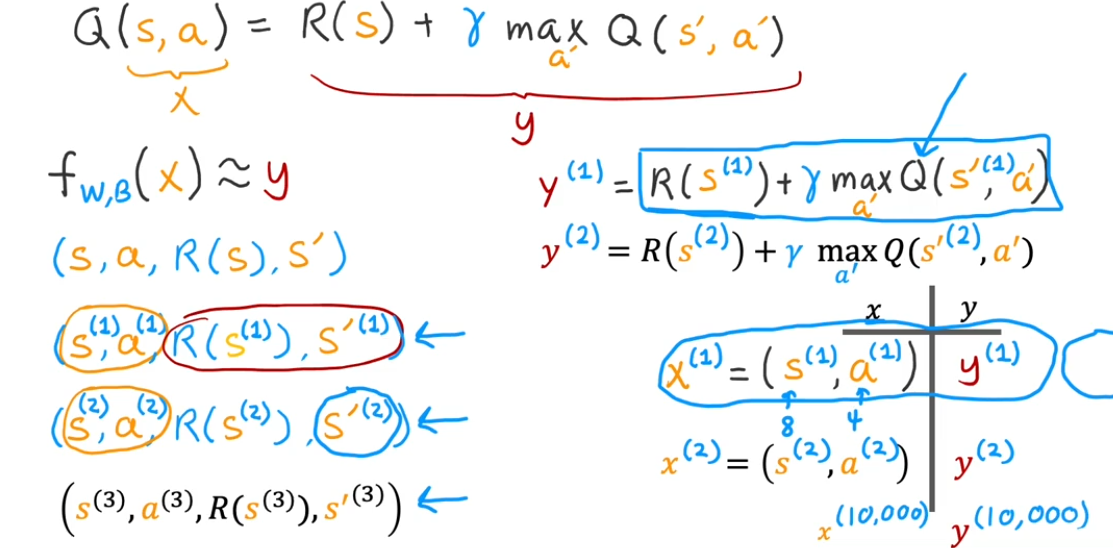 Q(s, a) = R(s) + γ max Q(s′, a′)
a′
x
y
f_{W,B}(x) ≈ y
(s, a, R(s), s′)
(s^(1), a^(1), R(s^(1)), s′^(1)) ←
(s^(2), a^(2), R(s^(2)), s′^(2)) ←
(s^(3), a^(3), R(s^(3)), s′^(3)) ←
y^(1) = R(s^(1)) + γ max Q(s′^(1), a′)
a′
y^(2) = R(s^(2)) + γ max Q(s′^(2), a′)
a′
x y
x^(1) = (s^(1), a^(1)) y^(1)
8 4
x^(2) = (s^(2), a^(2)) y^(2)
x^(10,000) y^(10,000)